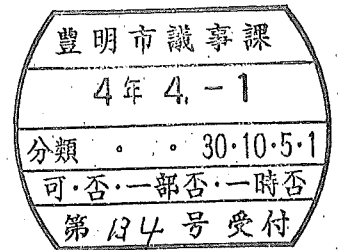 豊明市議事課
4年 4.-1
分類 ・ ・ 30・10・5・1
可・否・一部否・一時否
第 134 号 受付